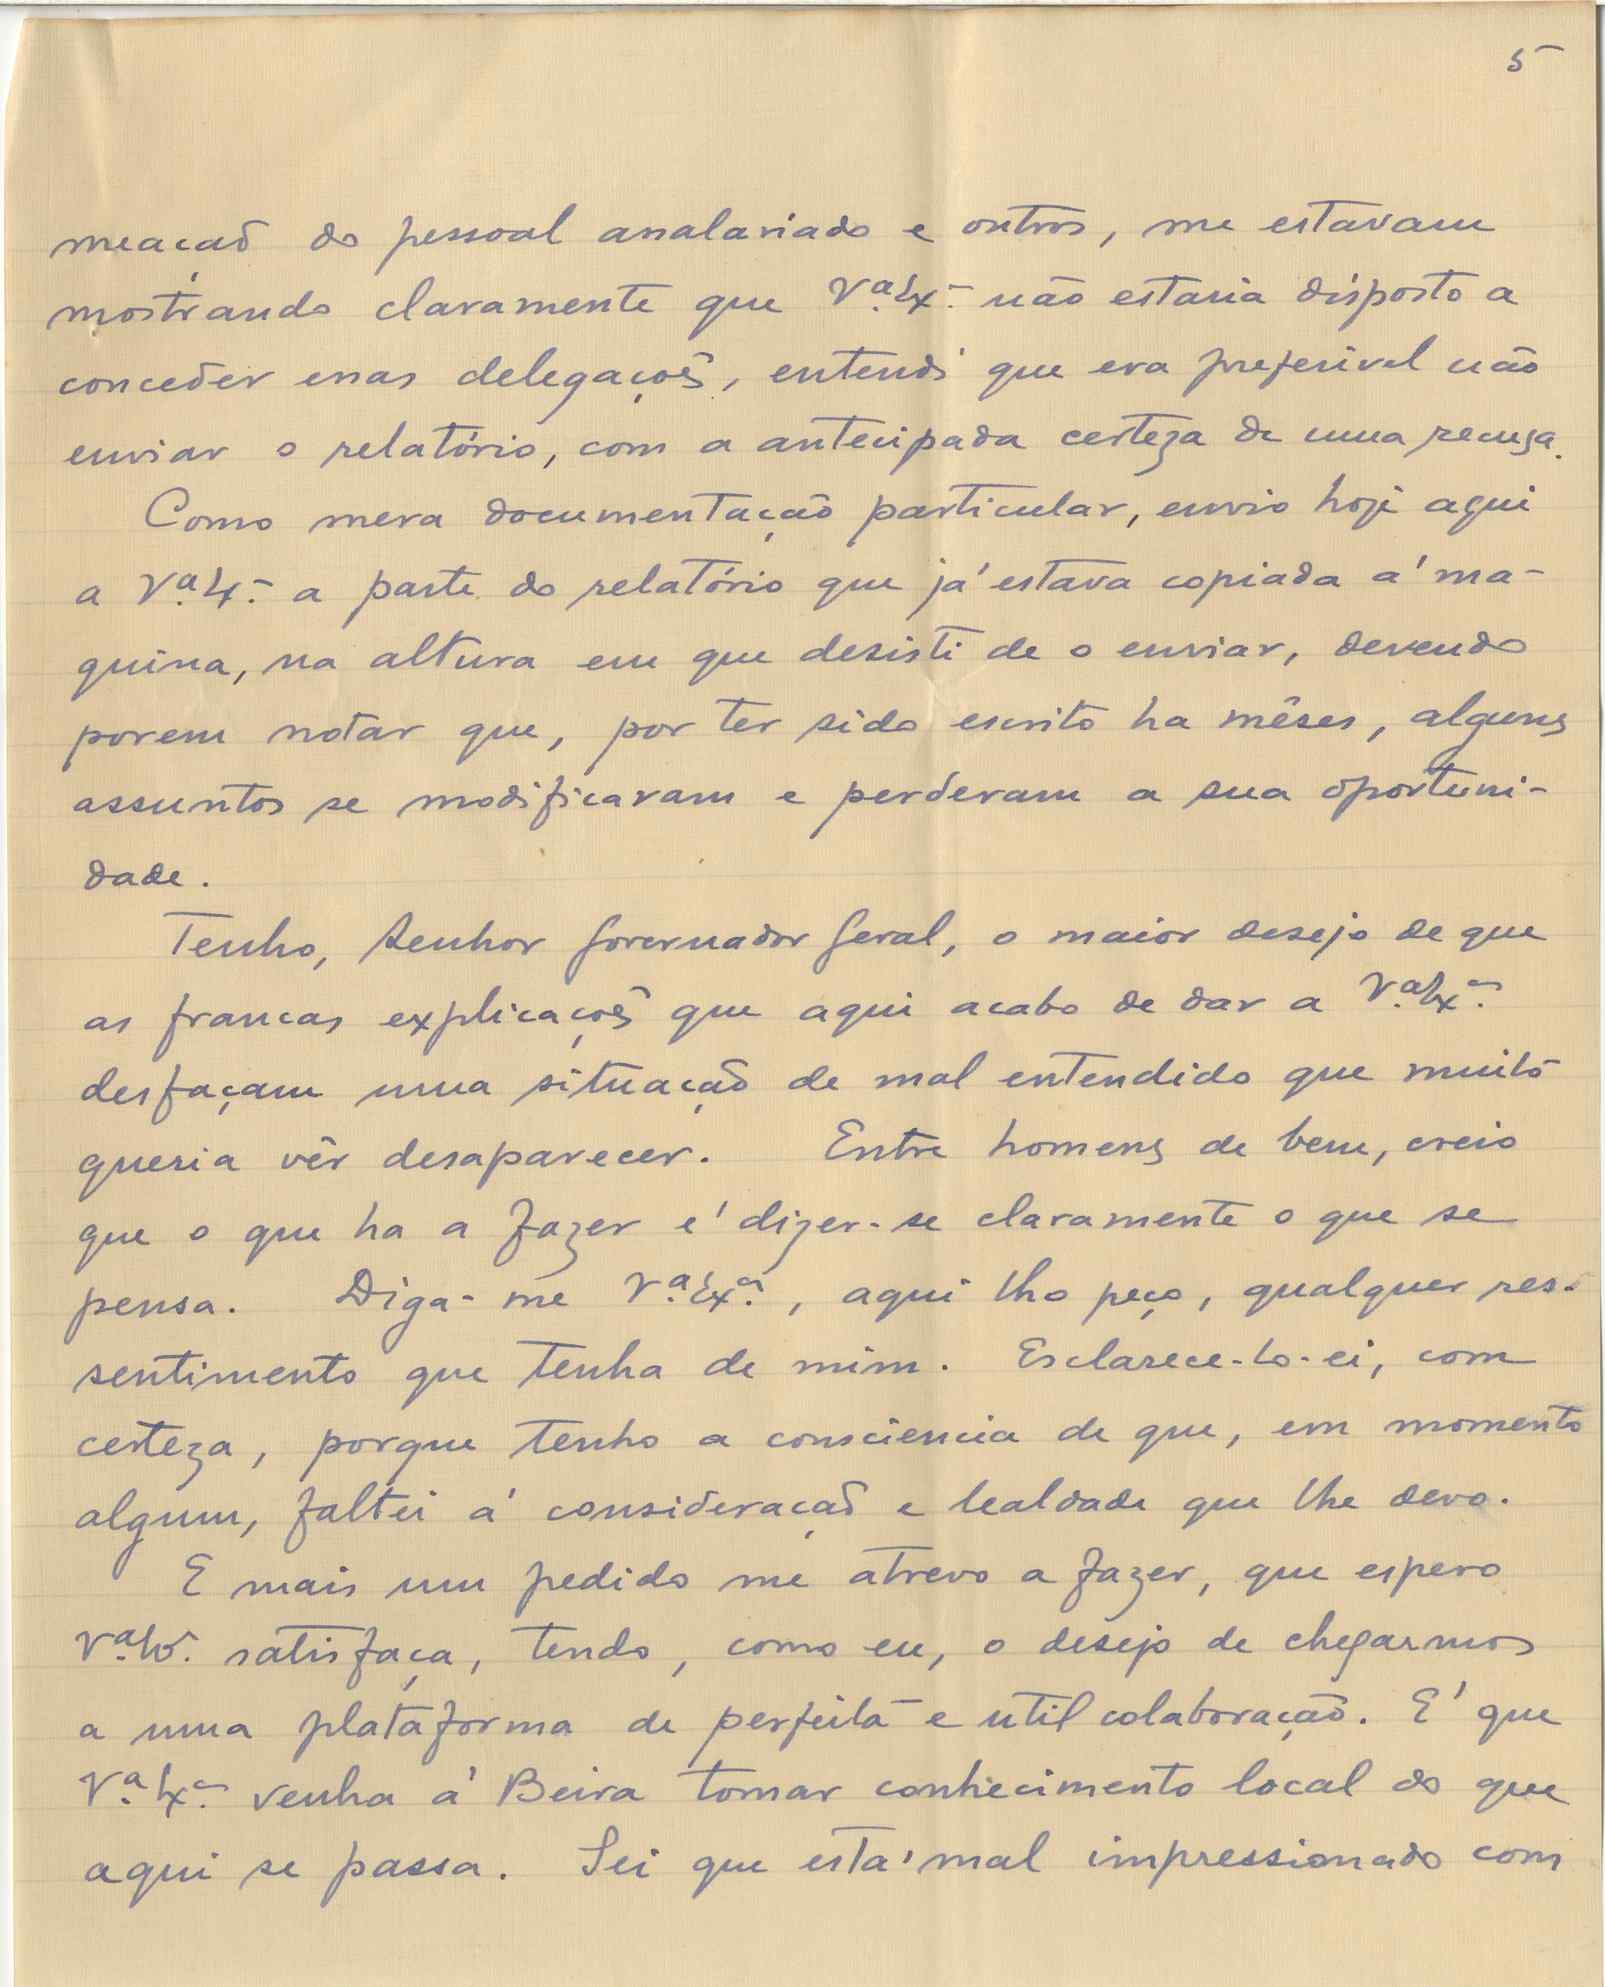 5
meação do pessoal assalariado e outros, me estavam
mostrando claramente que V.ª Ex.ª não estaria disposto a
conceder essas delegações, entendi que era preferivel não
enviar o relatório, com a antecipada certeza de uma recusa.
Como mera documentação particular, envio hoje aqui
a V.ª Ex.ª a parte do relatório que já estava copiada á ma-
quina, na altura em que desisti de o enviar, devendo
porem notar que, por ter sido escrito ha mêses, alguns
assuntos se modificaram e perderam a sua oportuni-
dade.
Tenho, Senhor Governador Geral, o maior desejo de que
as francas explicações que aqui acabo de dar a V.ª Ex.ª
desfaçam uma situação de mal entendido que muito
queria vêr desaparecer. Entre homens de bem, creio
que o que ha a fazer é dizer-se claramente o que se
pensa. Diga-me V.ª Ex.ª, aqui lho peço, qualquer res-
sentimento que tenha de mim. Esclarece-lo-ei, com
certeza, porque tenho a consciencia de que, em momento
algum, faltei á consideração e lealdade que lhe devo.
E mais um pedido me atrevo a fazer, que espero
V.ª Ex.ª satisfaça, tendo, como eu, o desejo de chegarmos
a uma plataforma de perfeita e util colaboração. E' que
V.ª Ex.ª venha á Beira tomar conhecimento local do que
aqui se passa. Sei que está mal impressionado com